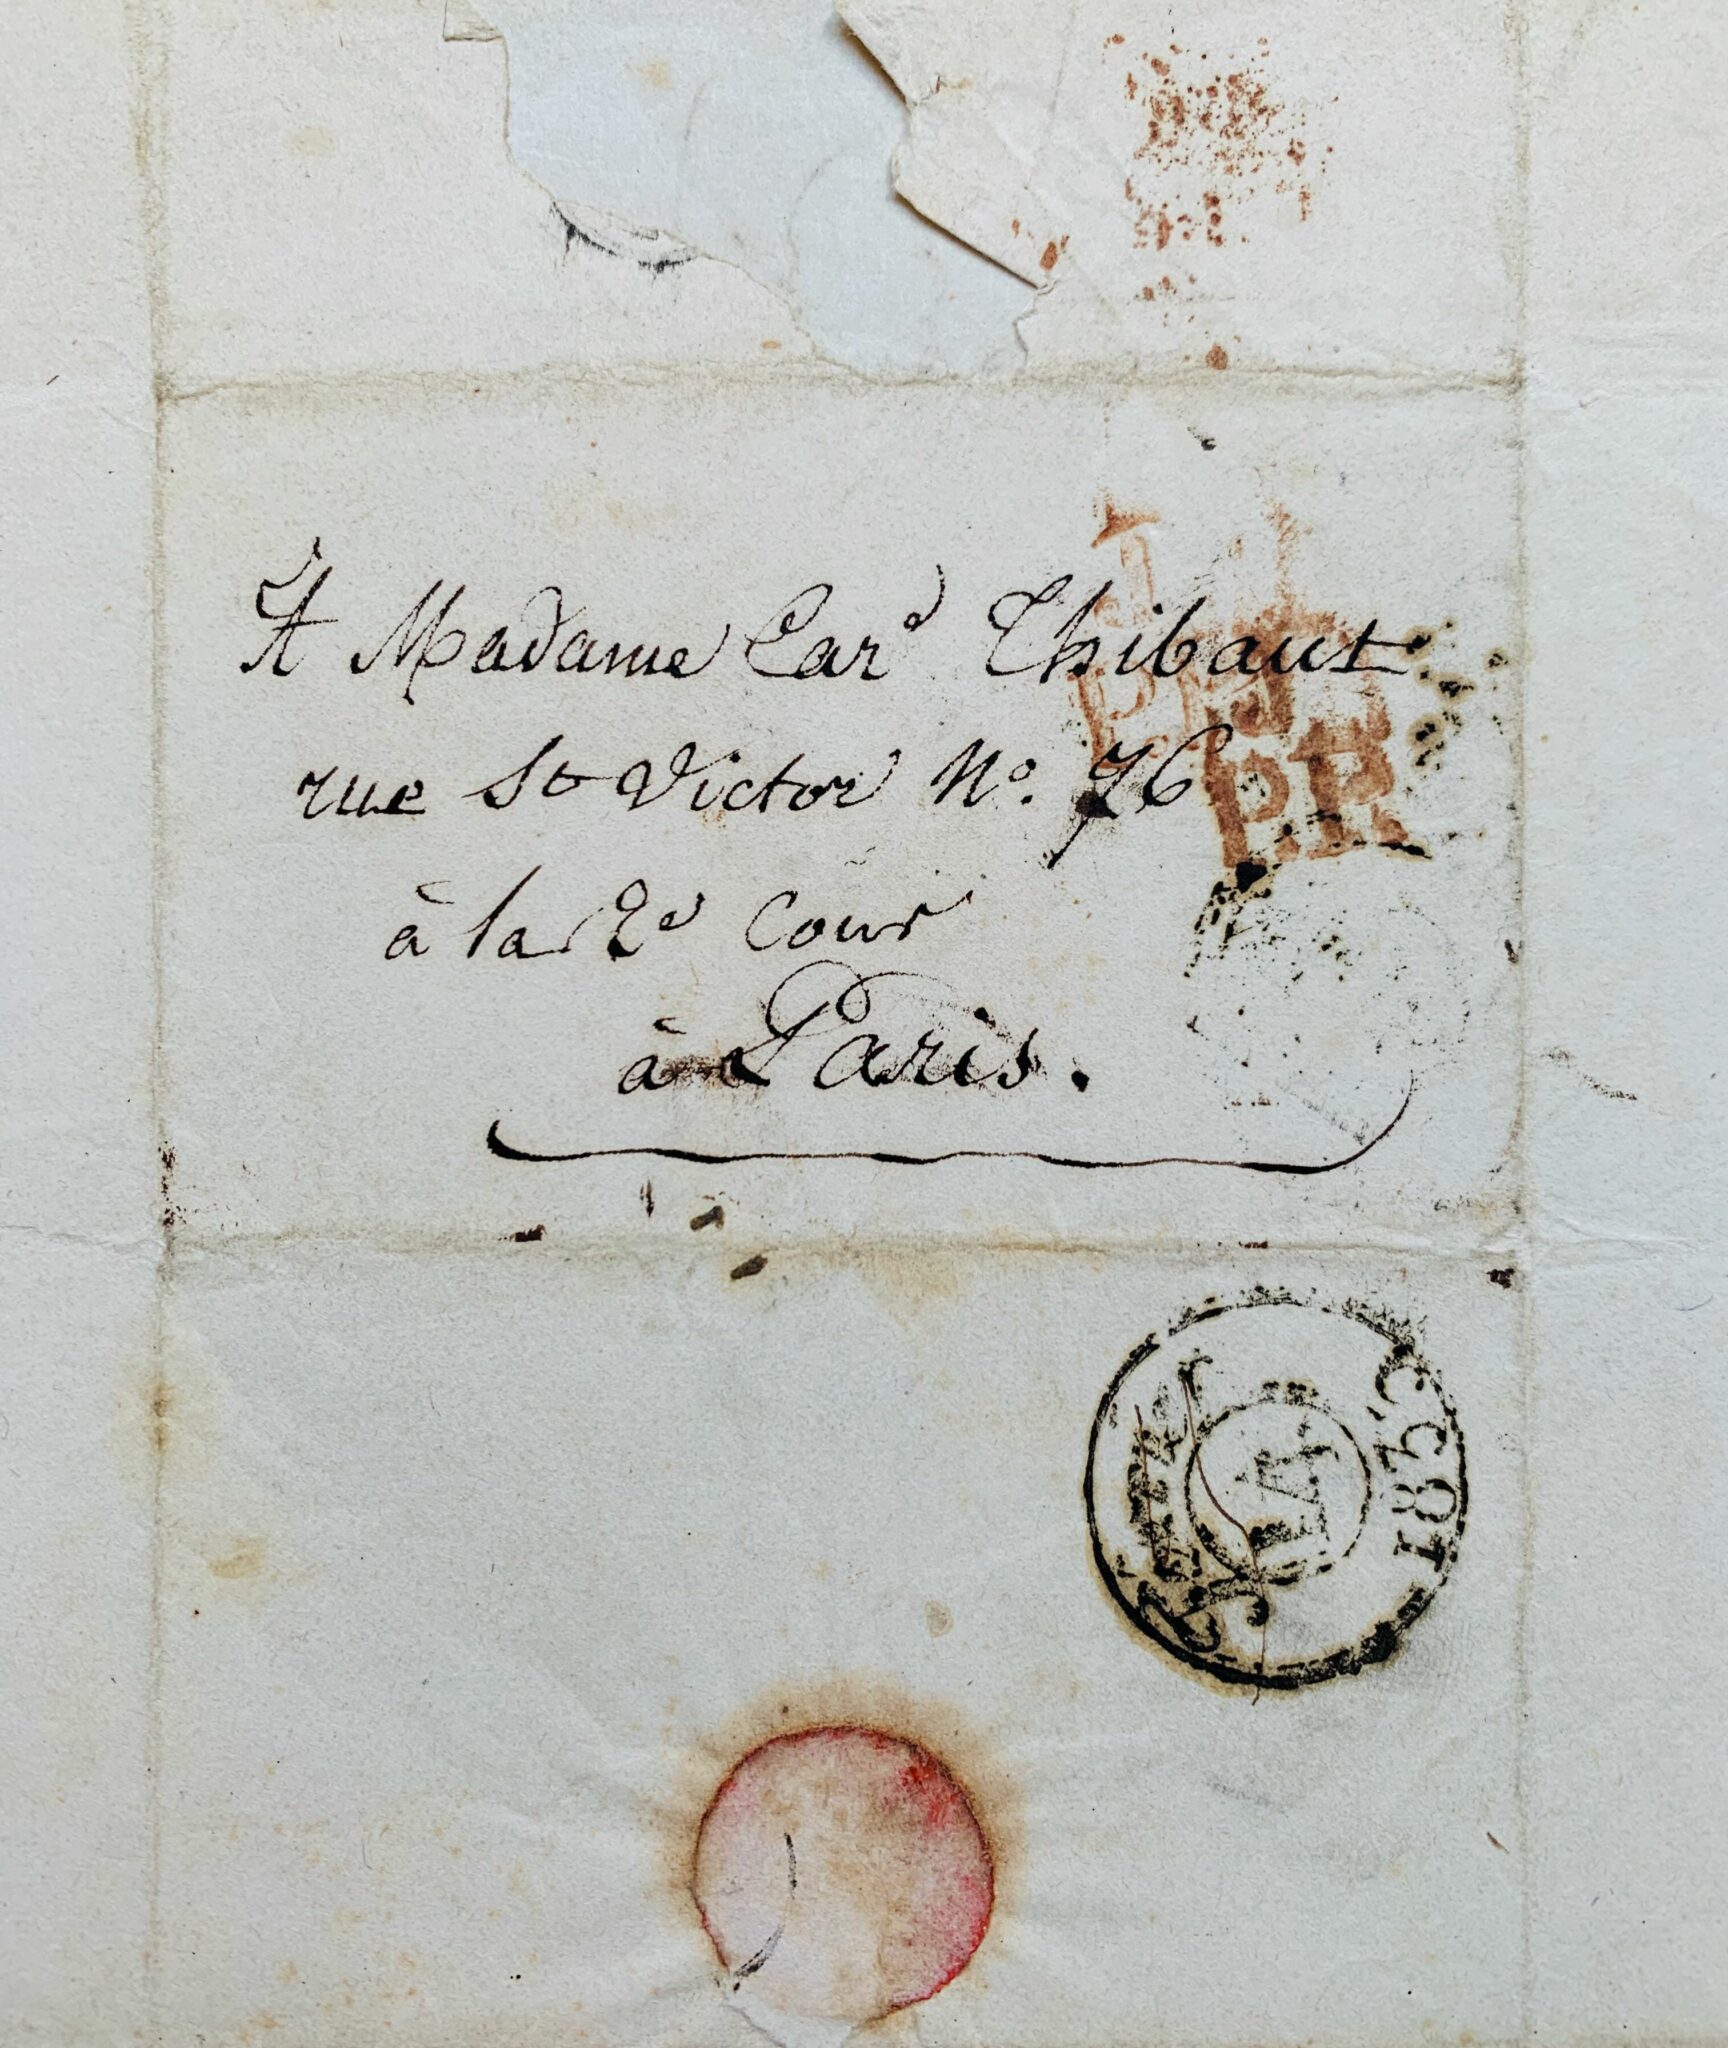 A Madame Car.d Thibaut
rue St Victor No. 76
à la 2e Cour
à Paris.
P.P.
1833